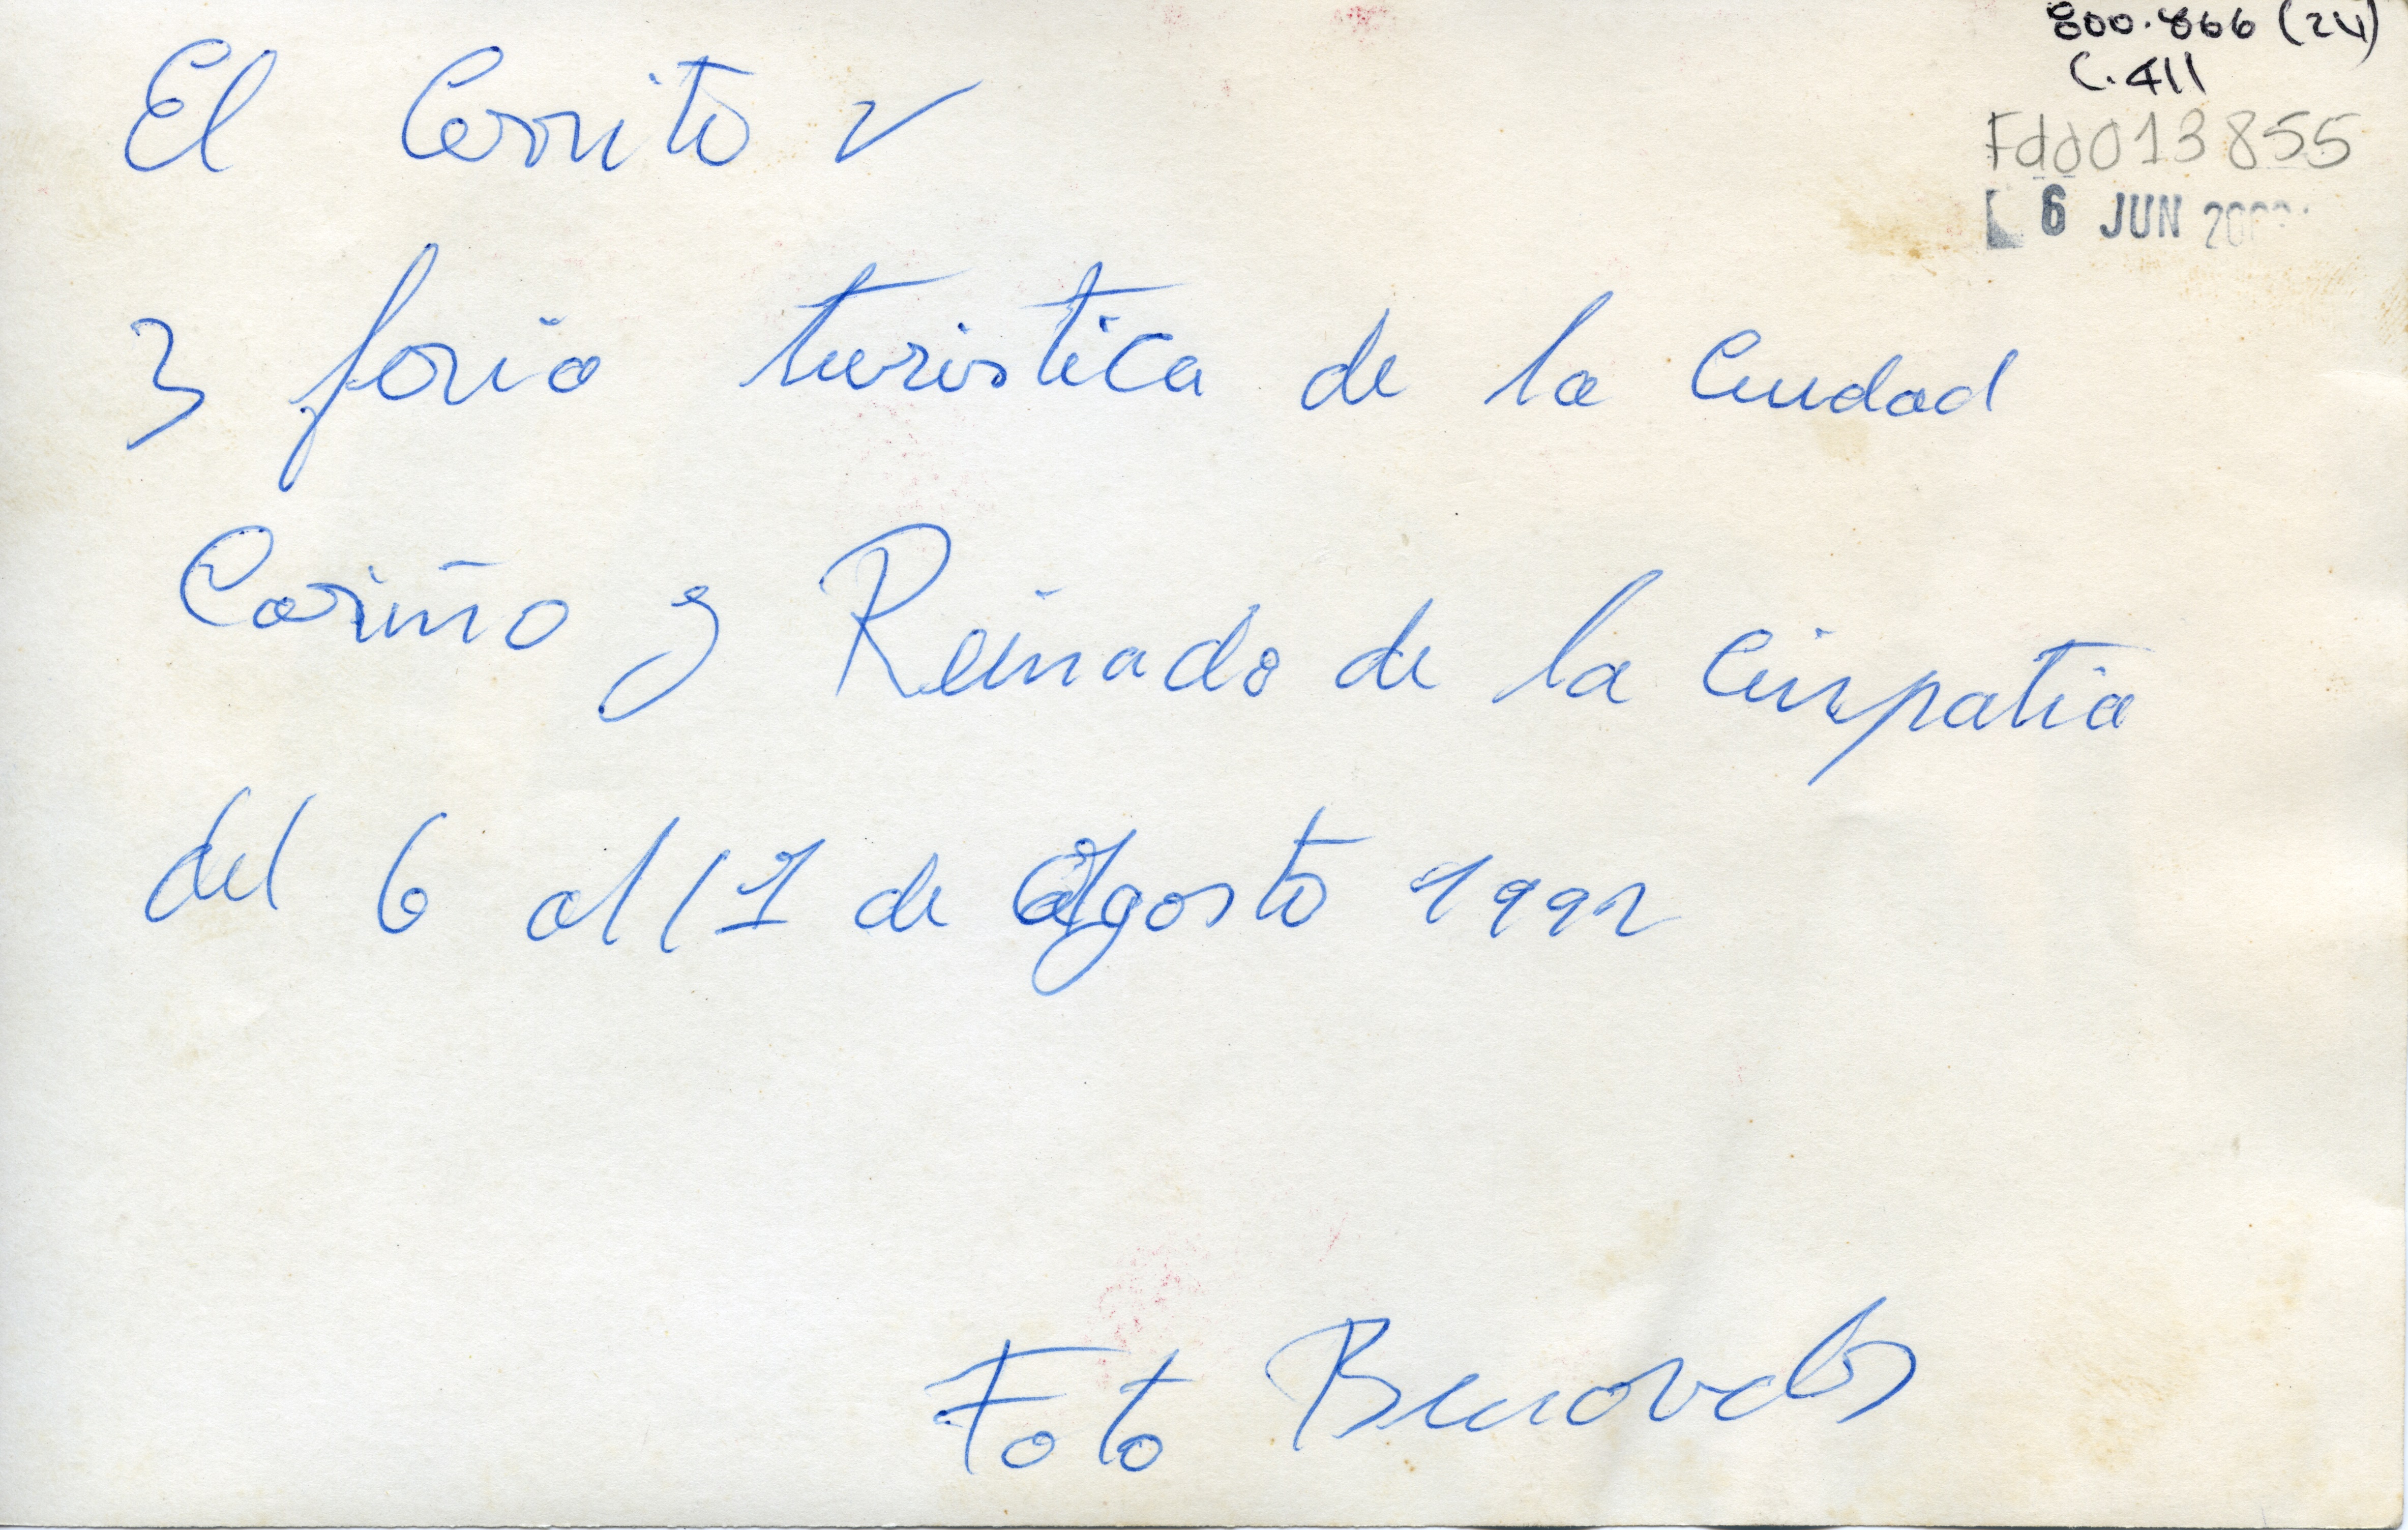 800.866 (24)
C.411
Fdd013855
6 JUN
El Cerrito V
3 feria turistica de la Ciudad
Cariño y Reinado de la Cinpatia
del 6 al 17 de Agosto 1992
Foto Benavides